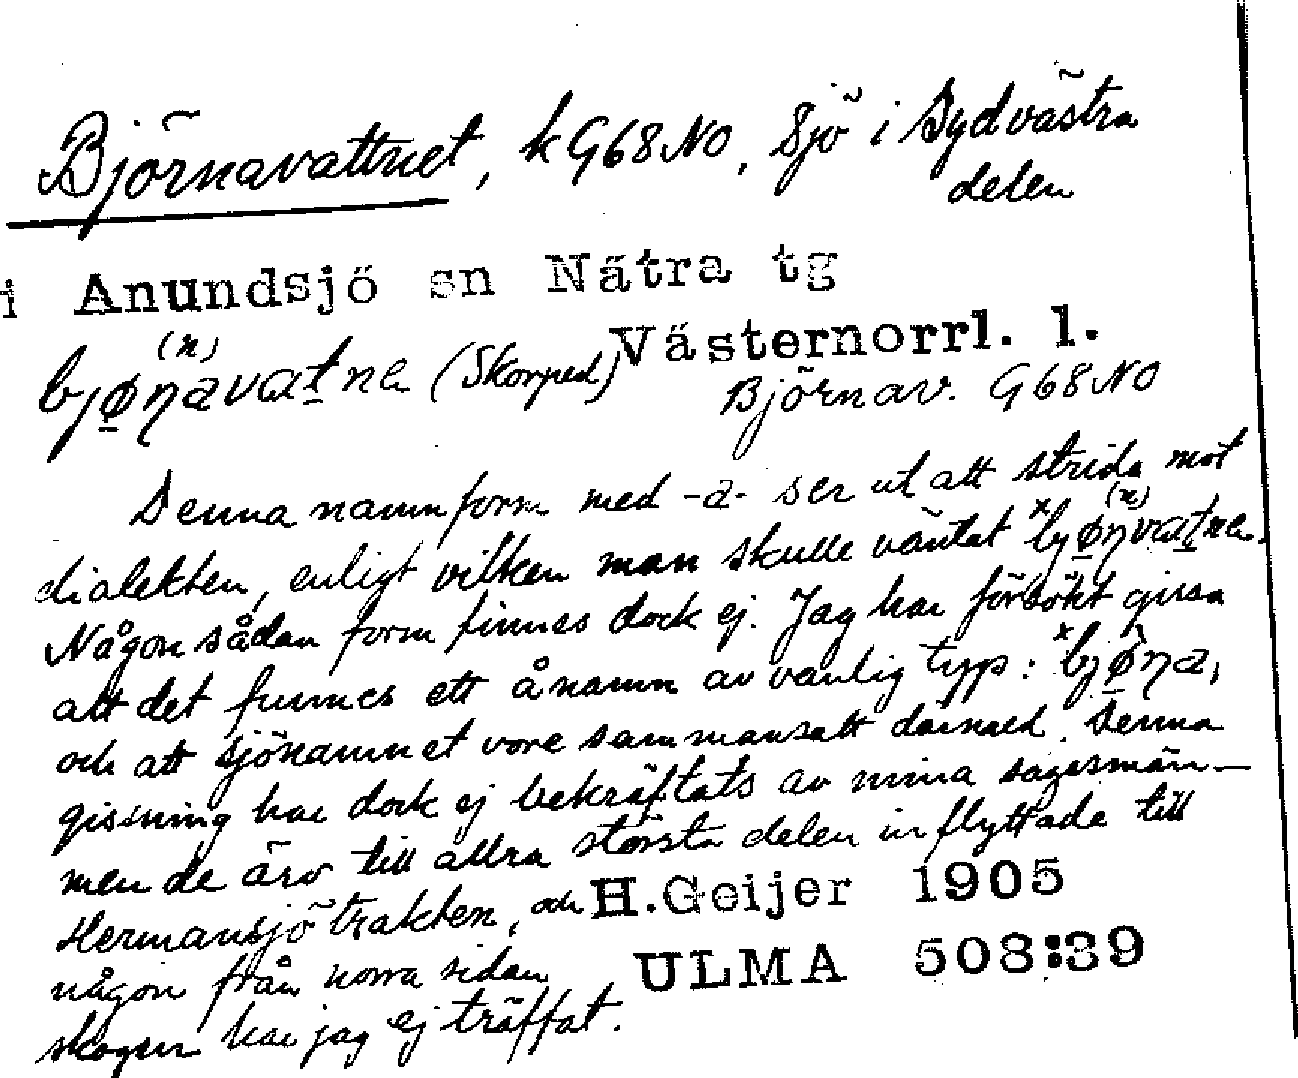 Björnavattnet, k G68NO, Sjö i Sydvästra
delen
i Anundsjö sn Nätra tg
Västernorrl. l.
(n)
bjøŋavatne (Skorped)
Björnav. G68NO
Denna namnform med -a- ser ut att strida mot
dialekten, enligt vilken man skulle väntat *bjøŋ(n)vatne.
Någon sådan form finnes dock ej. Jag har försökt gissa
att det funnes ett ånamn av vanlig typ: *bjøŋa,
och att sjönamnet vore sammansatt därmed. Denna
gissning har dock ej bekräftats av mina sagesmän —
men de äro till allra största delen inflyttade till
Hermansjötrakten, och
någon från norra sidan
skogen har jag ej träffat.
H. Geijer 1905
ULMA 508:39